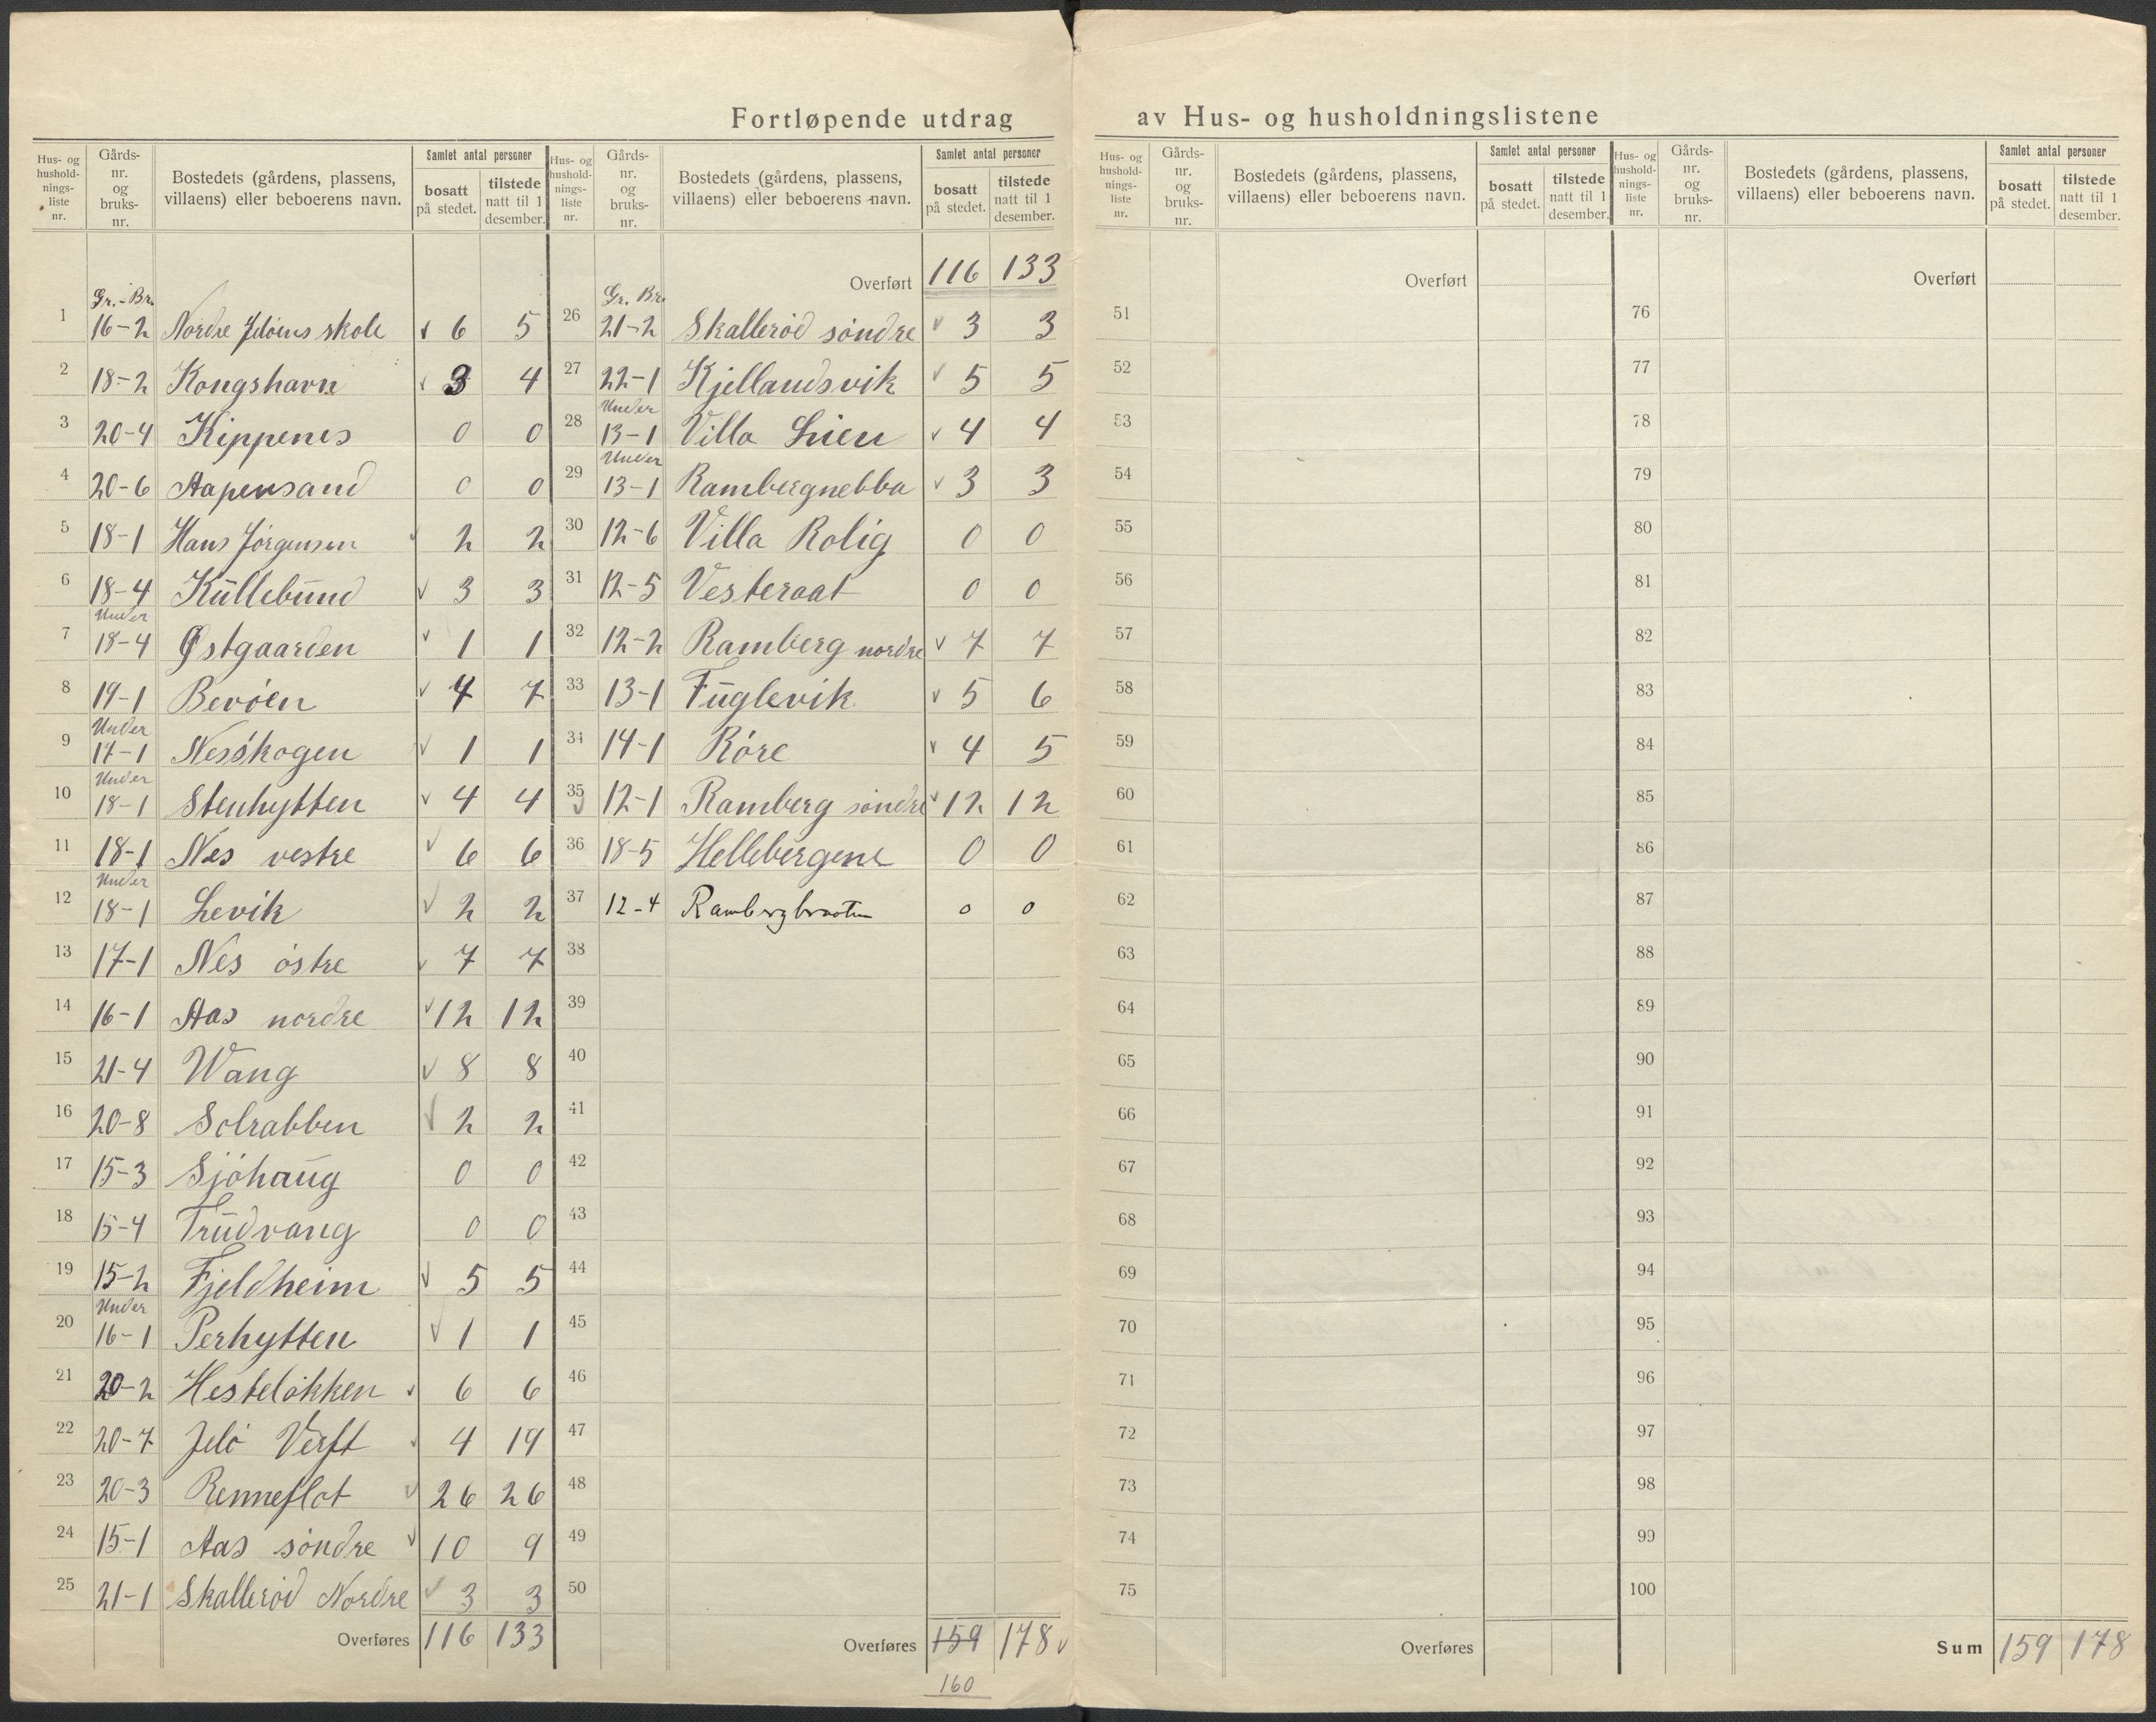 Fortløpende utdrag av Hus- og husholdningslistene
Hus- og hushold-nings-liste nr. Gårds-nr. og bruks-nr. Bostedets (gårdens, plassens, villaens) eller beboerens navn. Samlet antal personer bosatt på stedet. tilstede natt til 1 desember.
Gr. - Br.
1 16-2 Nordre Jeløens skole v 6 5
2 18-2 Kongshavn v 3 4
3 20-4 Kippenes 0 0
4 20-6 Aapensand 0 0
5 18-1 Hans Jørgensen v 2 2
6 18-4 Kullebund v 3 3
7 Under 18-4 Østgaarden v 1 1
8 19-1 Bevøen v 4 7
9 Under 17-1 Nesskogen v 1 1
10 Under 18-1 Stenhytten v 4 4
11 18-1 Nes vestre v 6 6
12 Under 18-1 Levik v 2 2
13 17-1 Nes østre v 7 7
14 16-1 Aas nordre v 12 12
15 21-4 Wang v 8 8
16 20-8 Solrabben v 2 2
17 15-3 Sjøhaug 0 0
18 15-4 Trudvang 0 0
19 15-2 Fjeldheim v 5 5
20 Under 16-1 Perhytten v 1 1
21 20-2 Hesteløkken v 6 6
22 20-7 Jelø Verft v 4 19
23 20-3 Renneflot v 26 26
24 15-1 Aas søndre v 10 9
25 21-1 Skallerød Nordre v 3 3
Overføres 116 133
Hus- og hushold-nings-liste nr. Gårds-nr. og bruks-nr. Bostedets (gårdens, plassens, villaens) eller beboerens navn. Samlet antal personer bosatt på stedet. tilstede natt til 1 desember.
Overført 116 133
Gr. Br.
26 21-2 Skallerød søndre v 3 3
27 22-1 Kjellandsvik v 5 5
28 Under 13-1 Villa Lien v 4 4
29 Under 13-1 Rambergnebba v 3 3
30 12-6 Villa Rolig 0 0
31 12-5 Vesteraat 0 0
32 12-2 Ramberg nordre v 7 7
33 13-1 Fuglevik v 5 6
34 14-1 Røre v 4 5
35 v 12-1 Ramberg søndre v 12 12
36 18-5 Hellebergene 0 0
37 12-4 Rambergbraaten 0 0
38
39
40
41
42
43
44
45
46
47
48
49
50
Overføres 159 178 v
160
Hus- og hushold-nings-liste nr. Gårds-nr. og bruks-nr. Bostedets (gårdens, plassens, villaens) eller beboerens navn. Samlet antal personer bosatt på stedet. tilstede natt til 1 desember.
Overført
51
52
53
54
55
56
57
58
59
60
61
62
63
64
65
66
67
68
69
70
71
72
73
74
75
Overføres
Hus- og hushold-nings-liste nr. Gårds-nr. og bruks-nr. Bostedets (gårdens, plassens, villaens) eller beboerens navn. Samlet antal personer bosatt på stedet. tilstede natt til 1 desember.
Overført
76
77
78
79
80
81
82
83
84
85
86
87
88
89
90
91
92
93
94
95
96
97
98
99
100
Sum 159 178